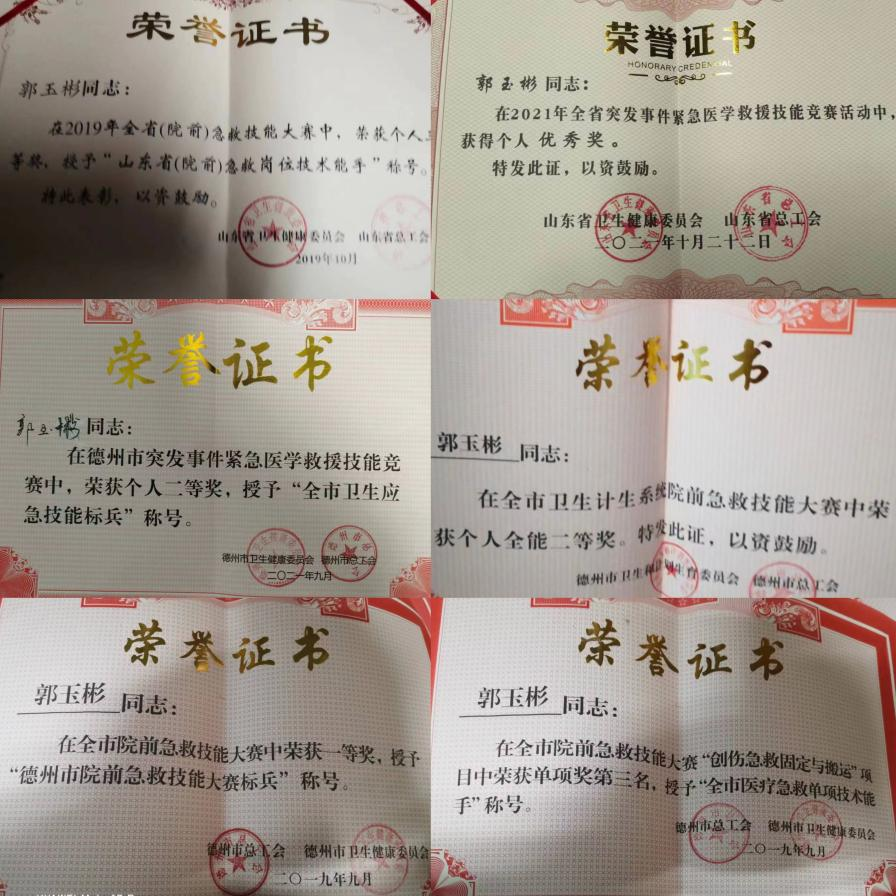 荣誉证书
郭玉彬同志：
在2019年全省(院前)急救技能大赛中，荣获个人三
等奖，授予“山东省(院前)急救岗位技术能手”称号。
特此表彰，以资鼓励。
山东省卫生健康委员会 山东省总工会
2019年10月
荣誉证书
HONORARY CREDENTIAL
郭玉彬 同志：
在2021年全省突发事件紧急医学救援技能竞赛活动中，
获得个人 优秀奖。
特发此证，以资鼓励。
山东省卫生健康委员会 山东省总工会
二〇二一年十月二十二日
荣誉证书
郭玉彬 同志：
在德州市突发事件紧急医学救援技能竞
赛中，荣获个人二等奖，授予“全市卫生应
急技能标兵”称号。
德州市卫生健康委员会 德州市总工会
二〇二一年九月
荣誉证书
郭玉彬 同志：
在全市卫生计生系统院前急救技能大赛中荣
获个人全能二等奖。特发此证，以资鼓励。
德州市卫生和计划生育委员会 德州市总工会
荣誉证书
郭玉彬 同志：
在全市院前急救技能大赛中荣获一等奖，授予
“德州市院前急救技能大赛标兵”称号。
德州市总工会 德州市卫生健康委员会
二〇一九年九月
荣誉证书
郭玉彬 同志：
在全市院前急救技能大赛“创伤急救固定与搬运”项
目中荣获单项奖第三名，授予“全市医疗急救单项技术能
手”称号。
德州市总工会 德州市卫生健康委员会
二〇一九年九月